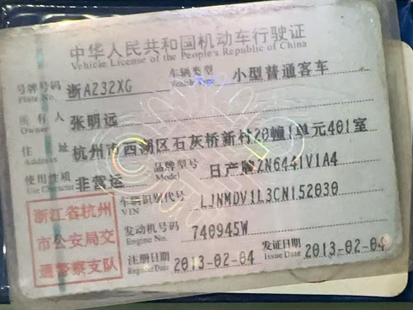 中华人民共和国机动车行驶证
Vehicle License of the People's Republic of China
号牌号码 浙A232XG 车辆类型 小型普通客车
Plate No. Vehicle Type
所有人 张明远
Owner
住址 杭州市西湖区石灰桥新村20幢1单元401室
Address
使用性质 非营运 品牌型号 日产牌ZN6441V1A4
Use Character Model
浙江省杭州
市公安局交
通警察支队
车辆识别代号 LJNMDV1L3CN152030
VIN
发动机号码 740945W
Engine No.
注册日期 2013-02-04 发证日期 2013-02-04
Register Date Issue Date